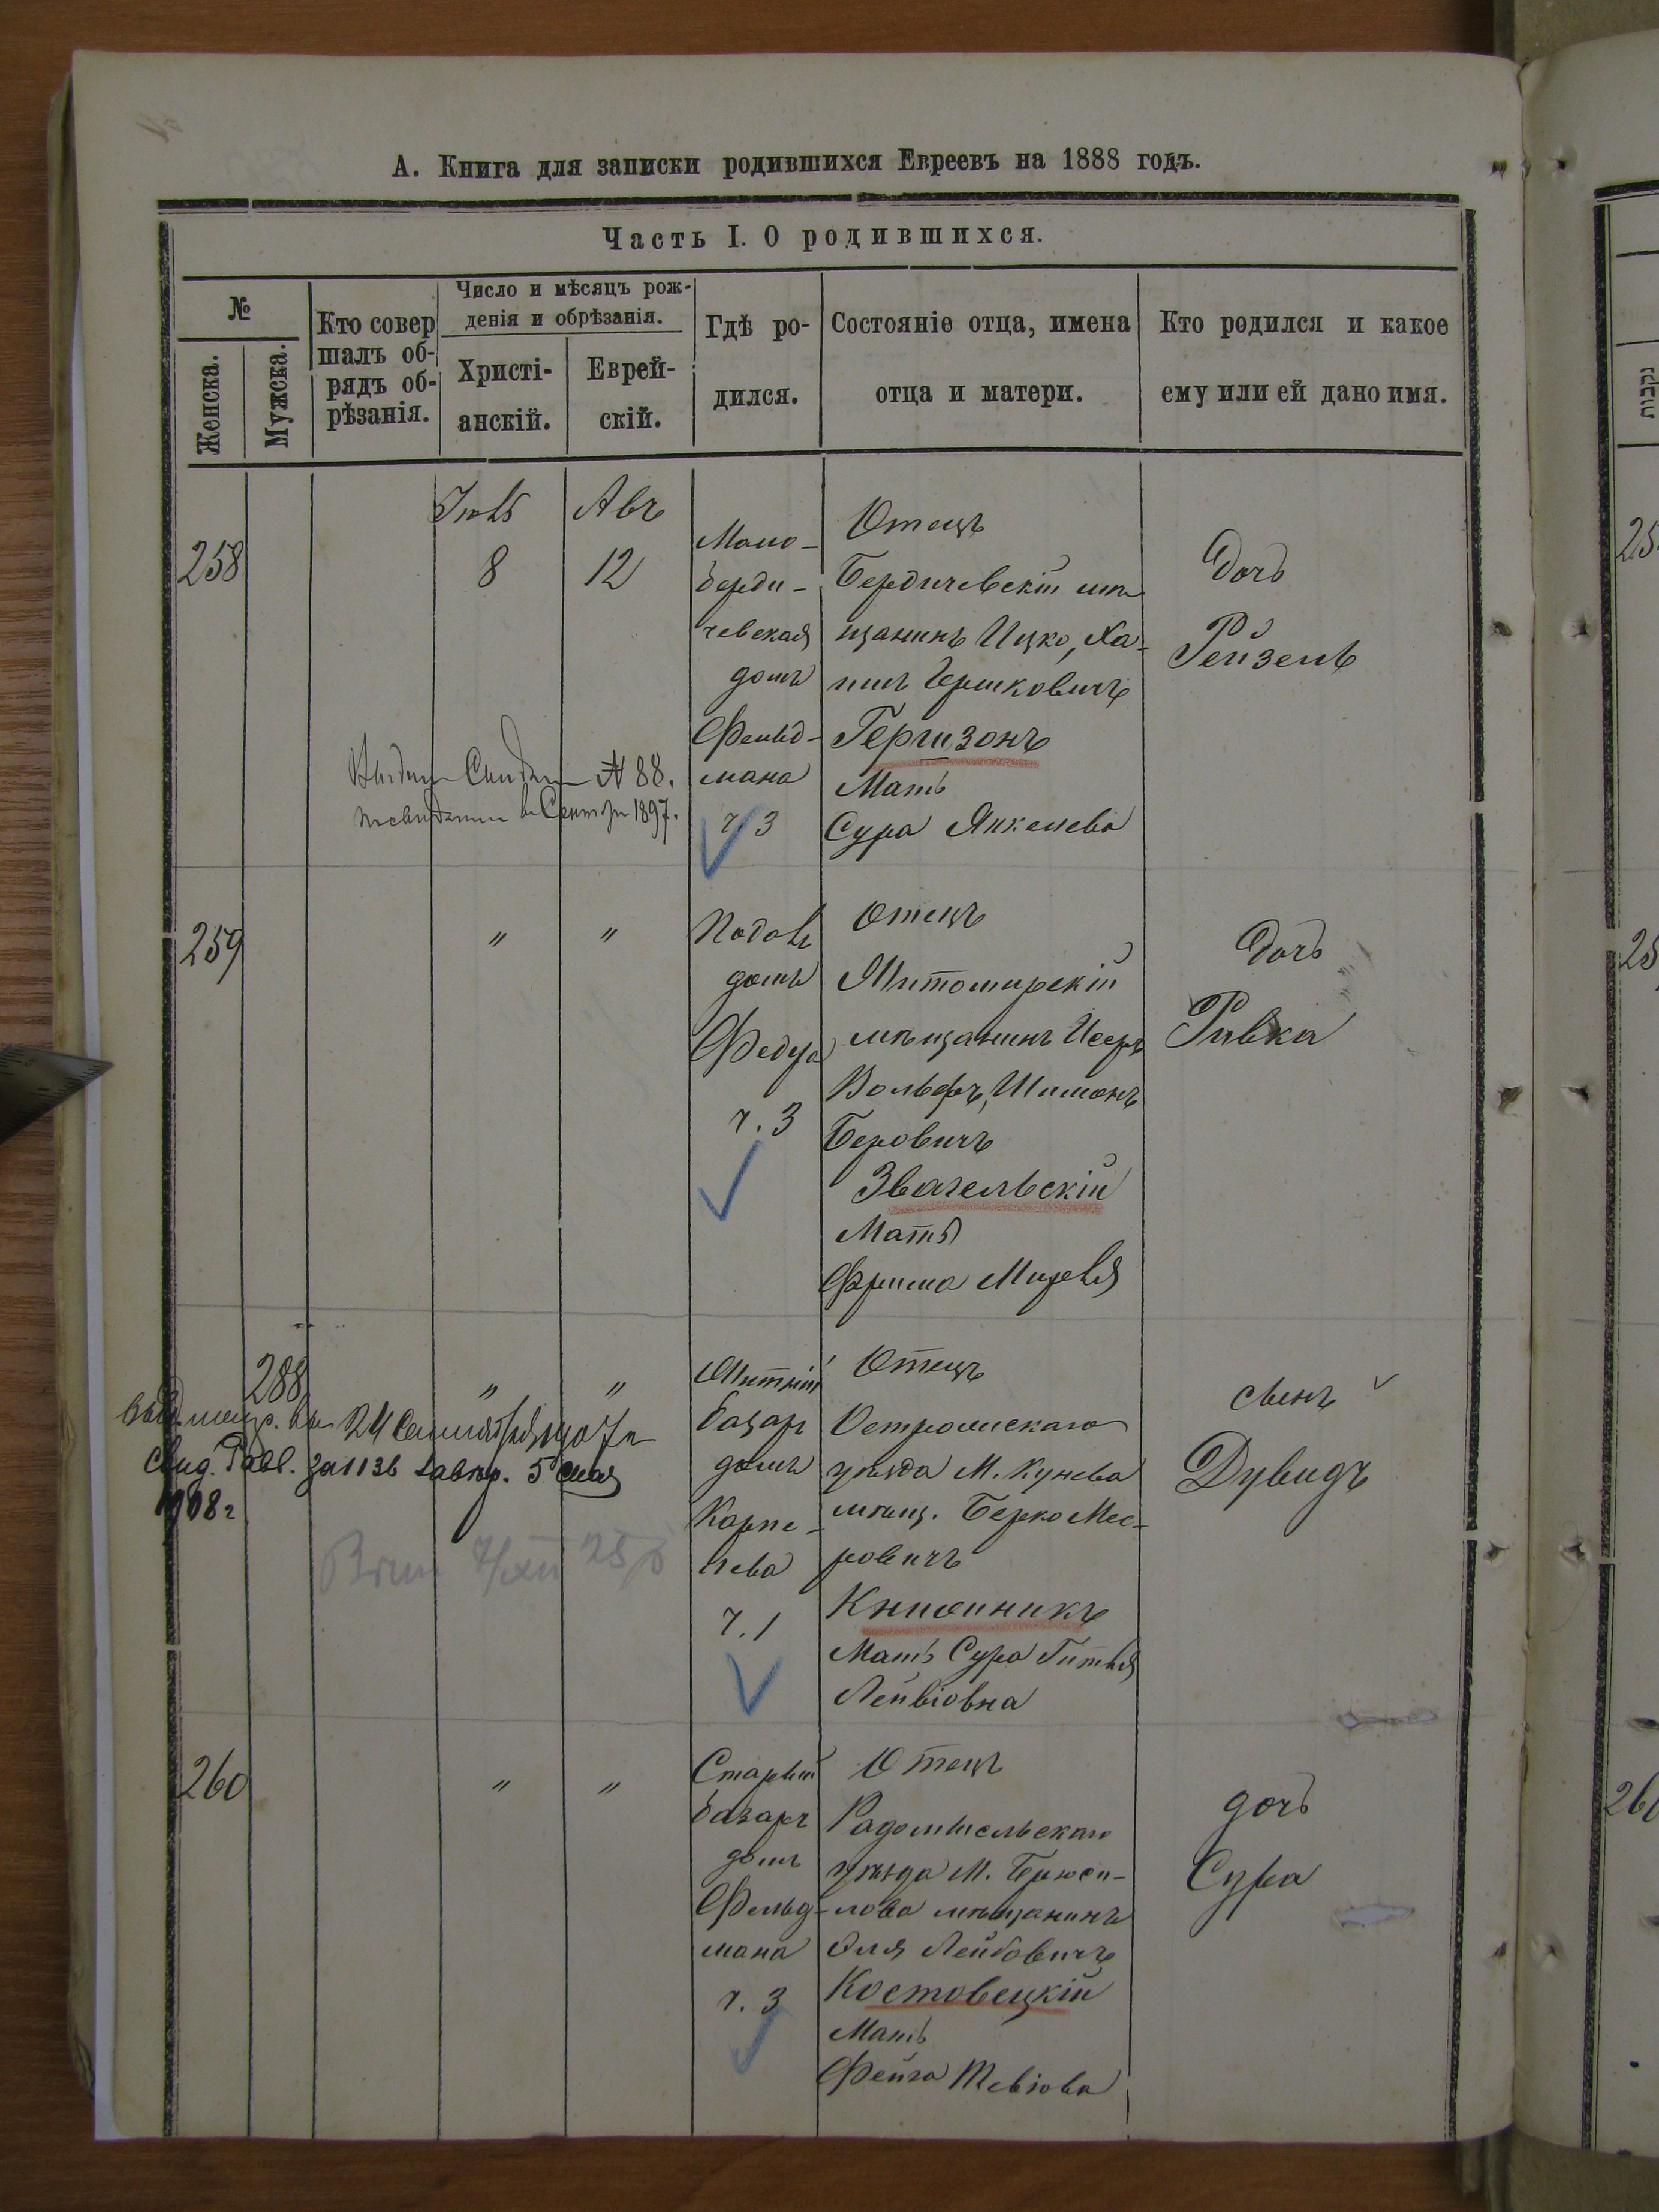 А. Книга для записки родившихся Евреевъ на 1888 годъ.
Часть I. О родившихся.
№
Женска.
Мужска.
Кто совер
шалъ об-
рядъ об-
рѣзанія.
Число и мѣсяцъ рож-
денія и обрѣзанія.
Христі-
анскій.
Еврей-
скій.
Гдѣ ро-
дился.
Состояніе отца, имена
отца и матери.
Кто родился и какое
ему или ей дано имя.
Авъ
258
8
12
Мало-
берди-
чевская
домъ
Фельд-
мана
ч. 3
Отецъ
Бердичевскій мѣ
щанинъ Ицко, Ха-
имъ Гершковичъ
Гершзонъ
Мать
Сура Янкелева
Дочь
Рейзель
№ 88.
1897.
259
"
"
домъ
ч. 3
Отецъ
Житомирскій
мѣщанинъ
Вольфъ, Шимонъ
Беровичъ
Звягельскій
Мать
Фрима
Дочь
Ривка
288
"
"
24
за 1136
5 мая
1908 г
базаръ
домъ
Карпе-
лева
ч. 1
Отецъ
Острожскаго
уѣзда М. Кунева
мѣщ. Берко Мее-
ровичъ
Книжникъ
Мать Сура Гитля
Лейвіовна
сынъ
Дувидъ
260
"
"
Старый
базаръ
домъ
Фельд-
мана
ч. 3
Отецъ
Радомысльскаго
уѣзда М. Брюси-
лова мѣщанинъ
Эля Лейбовичъ
Костовецкій
Мать
Фейга Тевіова
дочь
Сура
נקבות
25
25
260